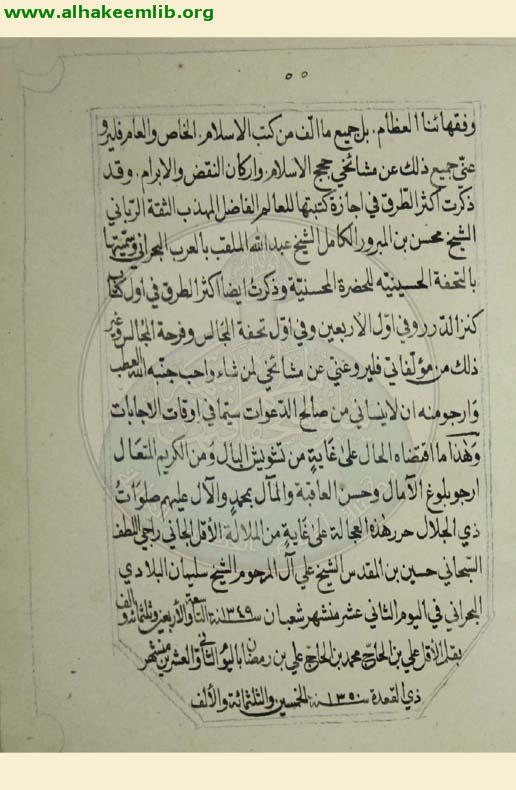 www.alhakeemlib.org
٥٥
وفقهائنا العظام. بل جميع ما الّف من كتب الاسلام. الخاص والعام فليرو
عنّي جميع ذلك عن مشائخي حجج الاسلام. واركان النقض والابرام. وقد
ذكرت اكثر الطّرق في اجازة كتبتها للعالم الفاضل المهذب الثقة الرّباني
الشيخ محسن بن المبرور الكامل الشيخ عبد الله الملقب بالعرب البحراني وسمّيتها
بالتحفة الحسينيّه للحضرة المحسنيّة وذكرت ايضا اكثر الطرق في اول كتاب
كنز الدّرر وفي اوّل الاربعين وفي اوّل تحفة المجالس وفرحة المُجالس وغير
ذلك من مؤلّفاتي فليرو عنّي عن مشائخي لمن شاء واحب جنّبه الله العطب
وارجو منه ان لا ينساني من صالح الدّعوات سيّما في اوقات الاجابات
وهذا ما اقتضاه الحال على غايةٍ من تشويش البال ومن الكريم المتعال
ارجو بلوغ الآمال وحسن العاقبة والمآل بمحمدٍ والآل عليهم صلوات
ذي الجلال حرر هذه العجالة على غايةٍ من الملالة الأقل الجاني راجي اللطف
السّبحاني حسين بن المقدس الشيخ علي آل المرحوم الشيخ سليمان البلادي
البحراني في اليوم الثاني عشر من شهر شعبان سنة ١٣٤٩ التاسعة والأربعين وثلثمائة وألف
بقلم الأقل علي بن الحاج محمد بن الحاج علي بن رمضان باليوم الثاني والعشرين من شهر
ذي القعدة سنة ١٣٥٠ الخمسين والثلثمائة والألف